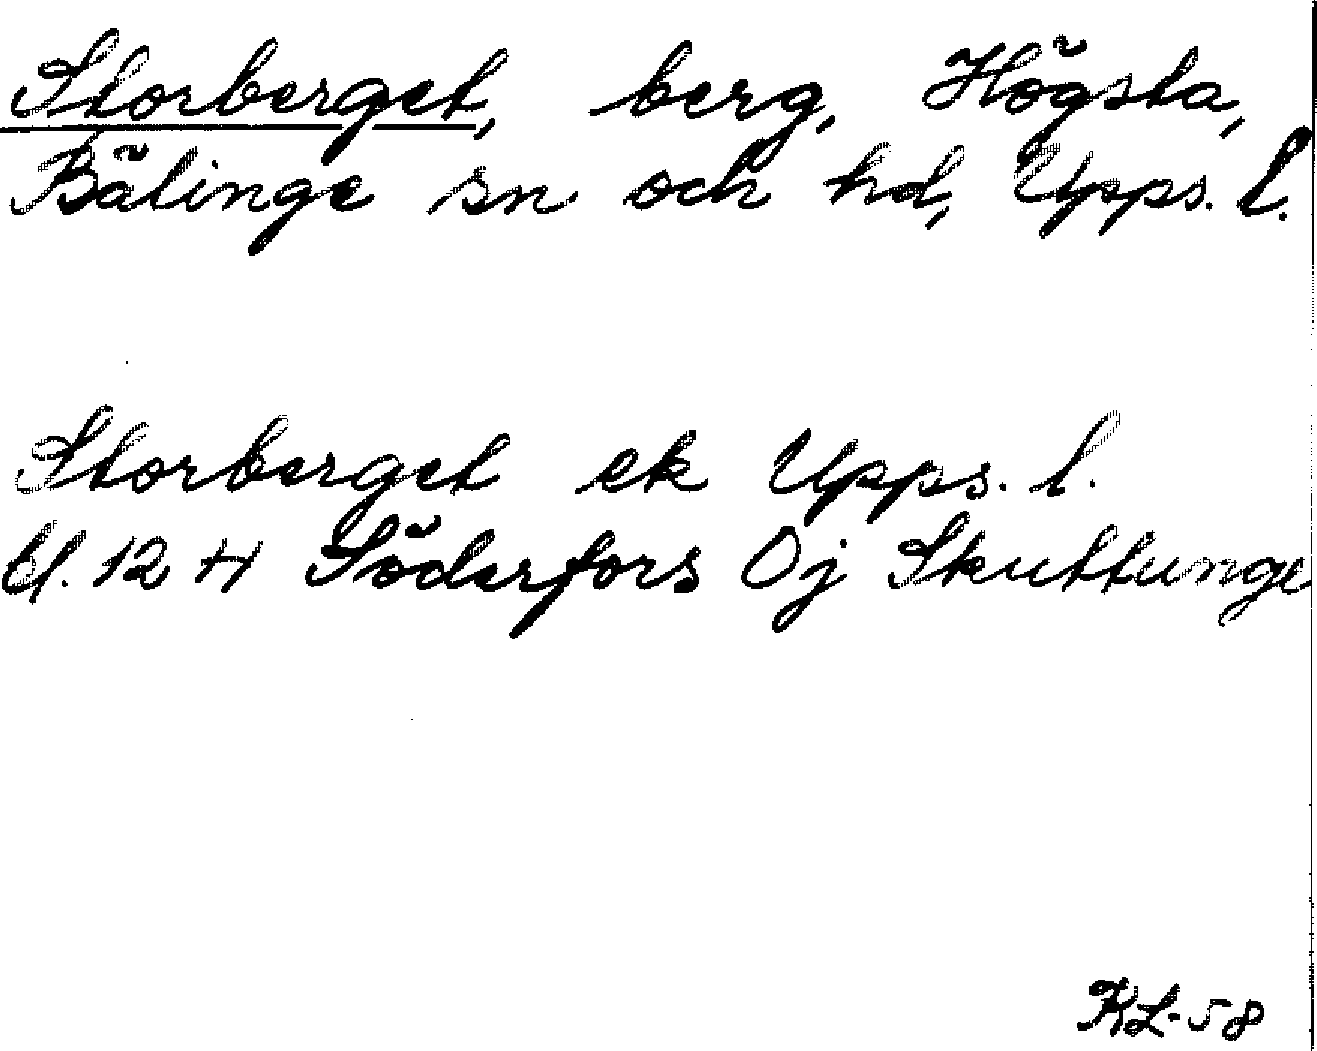 Storberget, berg, Högsta,
Bälinge sn och hd, Upps. l.
Storberget ek Upps. l.
bl. 12 H Söderfors Oj Skuttunge
KL-58